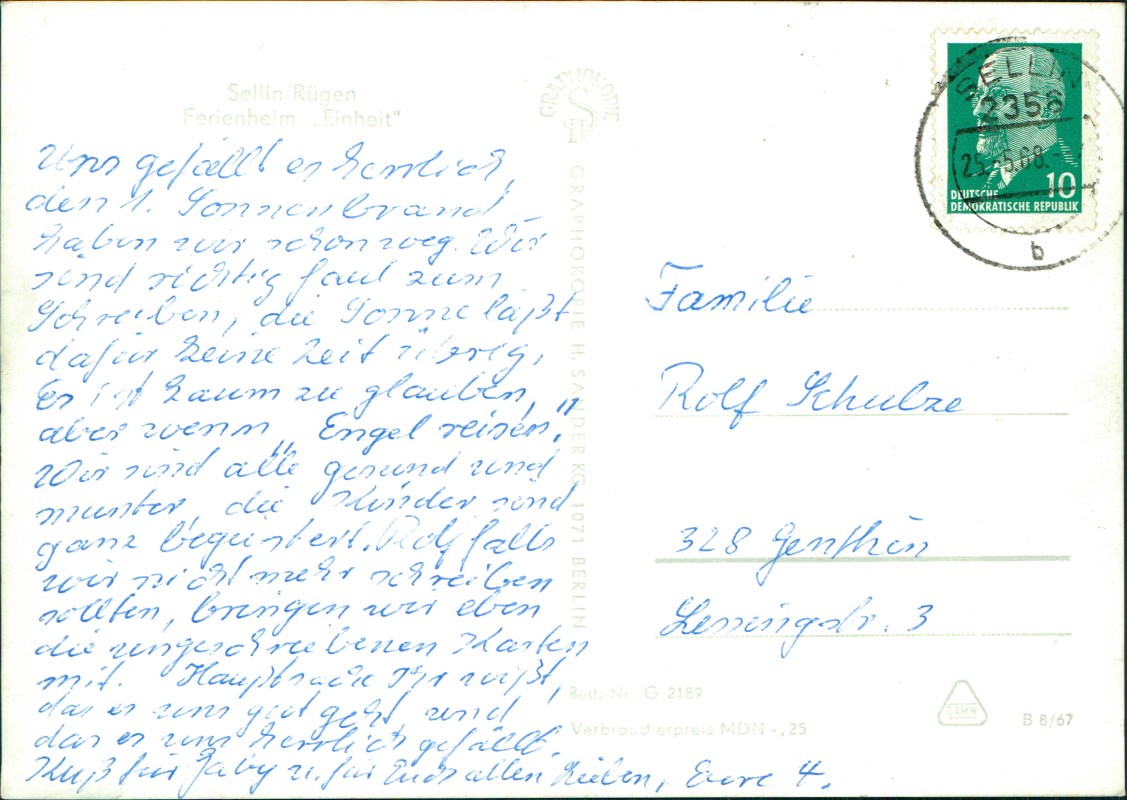 Sellin/Rügen
Ferienheim „Einheit"
Uns gefällt es herrlich,
den 1. Sonnenbrand
haben wir schon weg. Wir
sind richtig faul zum
Schreiben, die Sonne läßt
dafür keine Zeit übrig,
Es ist kaum zu glauben,
aber wenn „Engel reisen."
Wir sind alle gesund und
munter, die Kinder sind
ganz begeistert. Rolf falls
wir nicht mehr schreiben
sollten, bringen wir eben
die ungeschriebenen Karten
mit. Hauptsache Ihr wißt,
das es uns gut geht, und
das es uns herrlich gefällt.
Kuß für Gaby u. für Euch allen Lieben, Eure 4.
GRAPHOKOPIE
H S
GRAPHOKOPIE H. SANDER KG. 1071 BERLIN
SELLIN
2356
25.-5.68.-
b
10
DEUTSCHE
DEMOKRATISCHE REPUBLIK
Familie
Rolf Schulze
328 Genthin
Lessingstr. 3
Best.-Nr. G 2189
Verbraucherpreis MDN -,25
DAMW
B 8/67